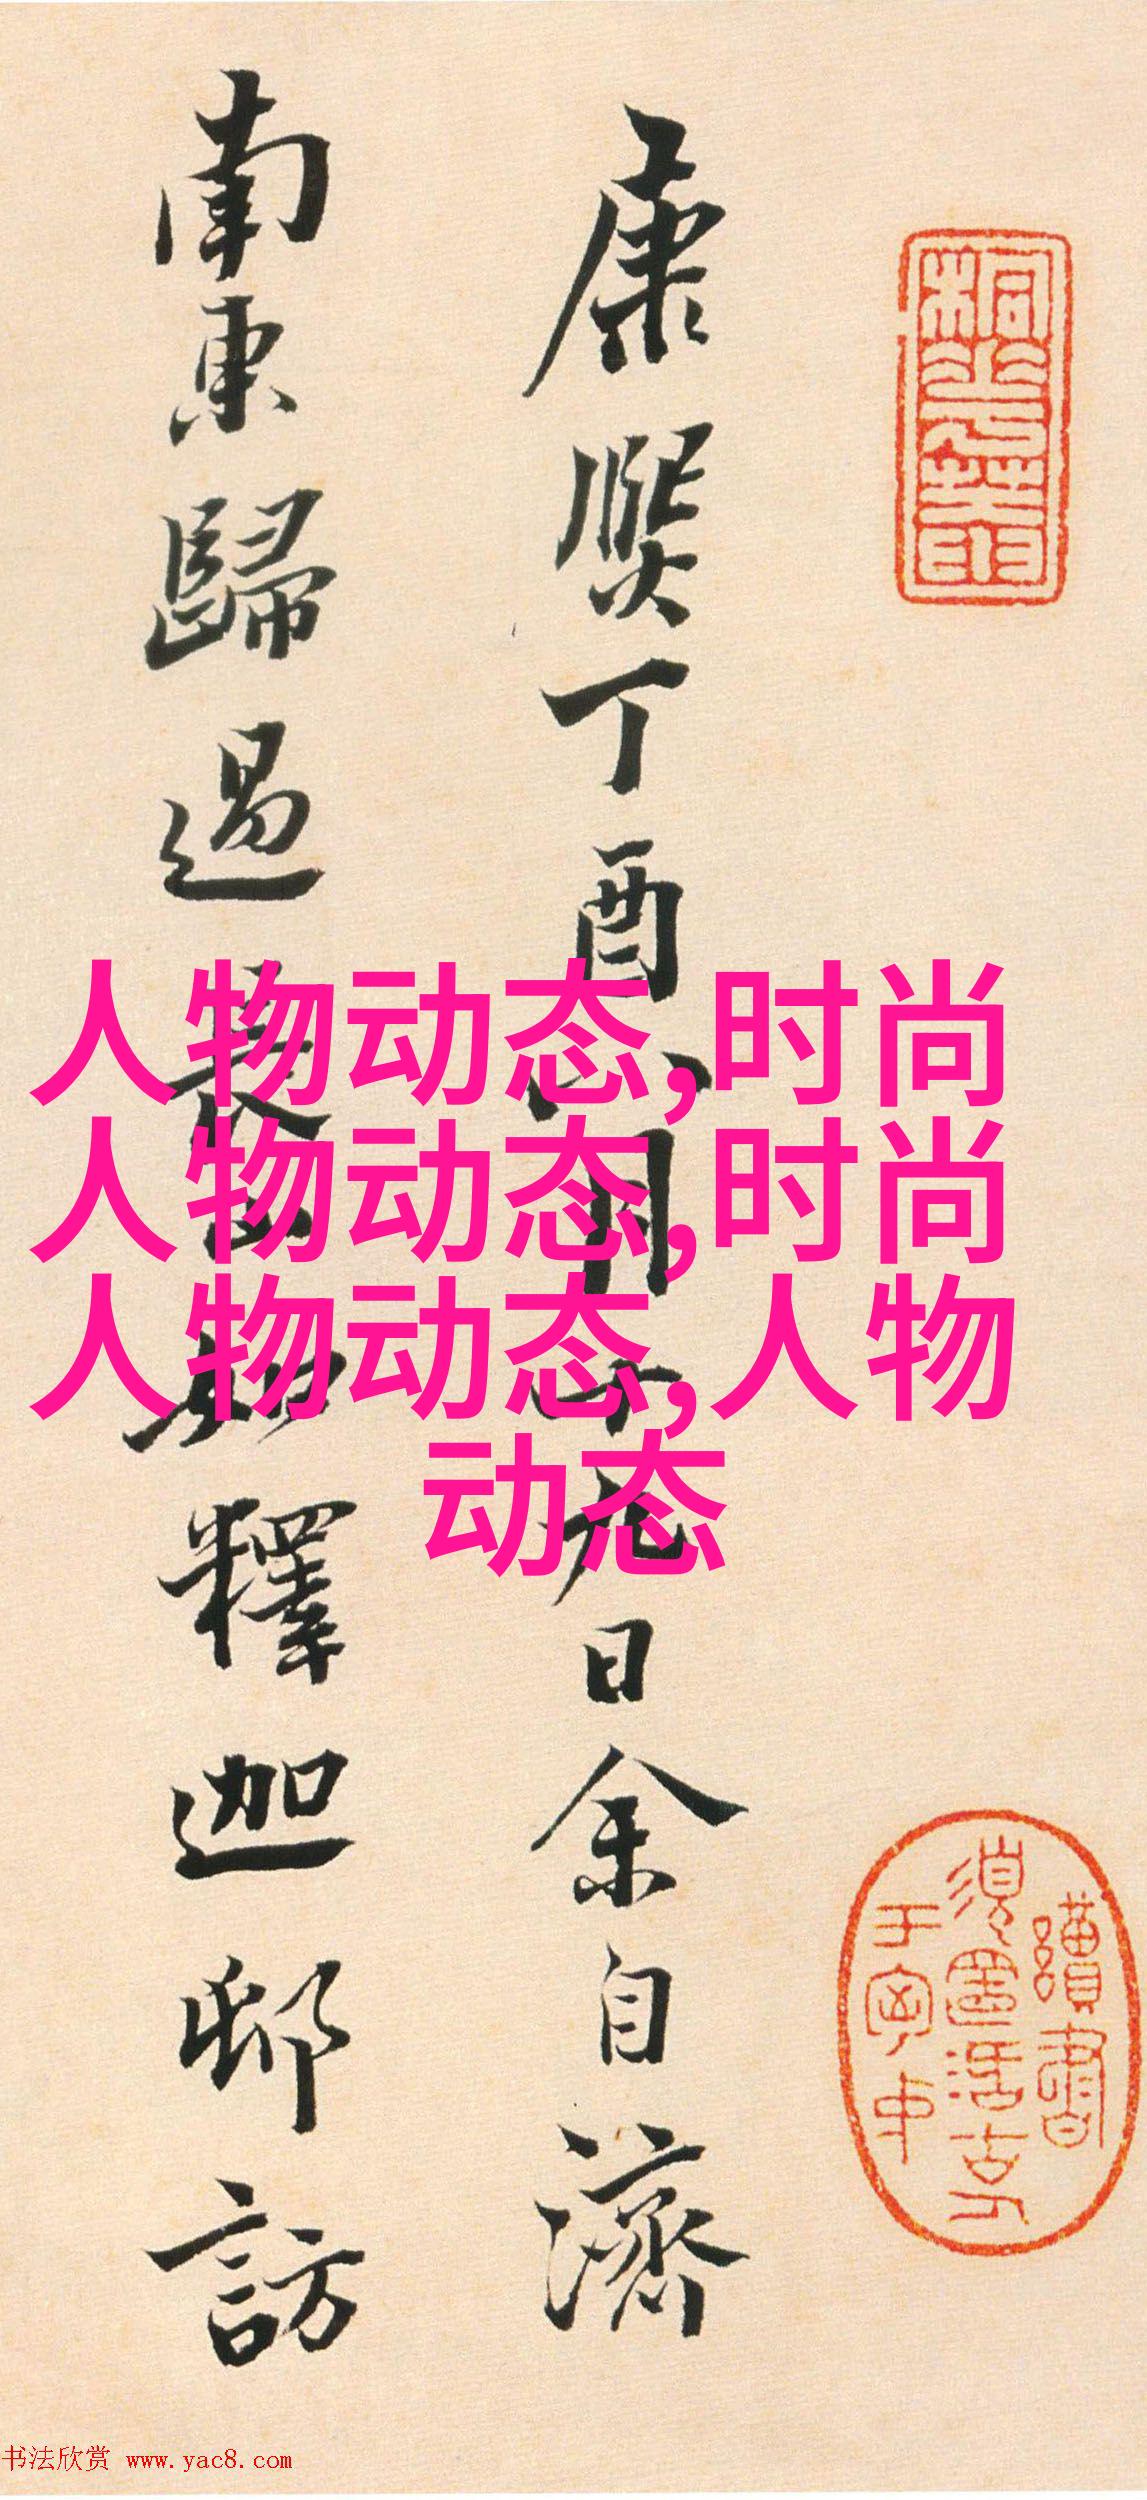 康熙丁酉八月十九日余自濟
南東歸過長山如釋迦邸訪
人物动态,时尚
人物动态,时尚
人物动态,人物
动态
书法欣赏 www.yac8.com